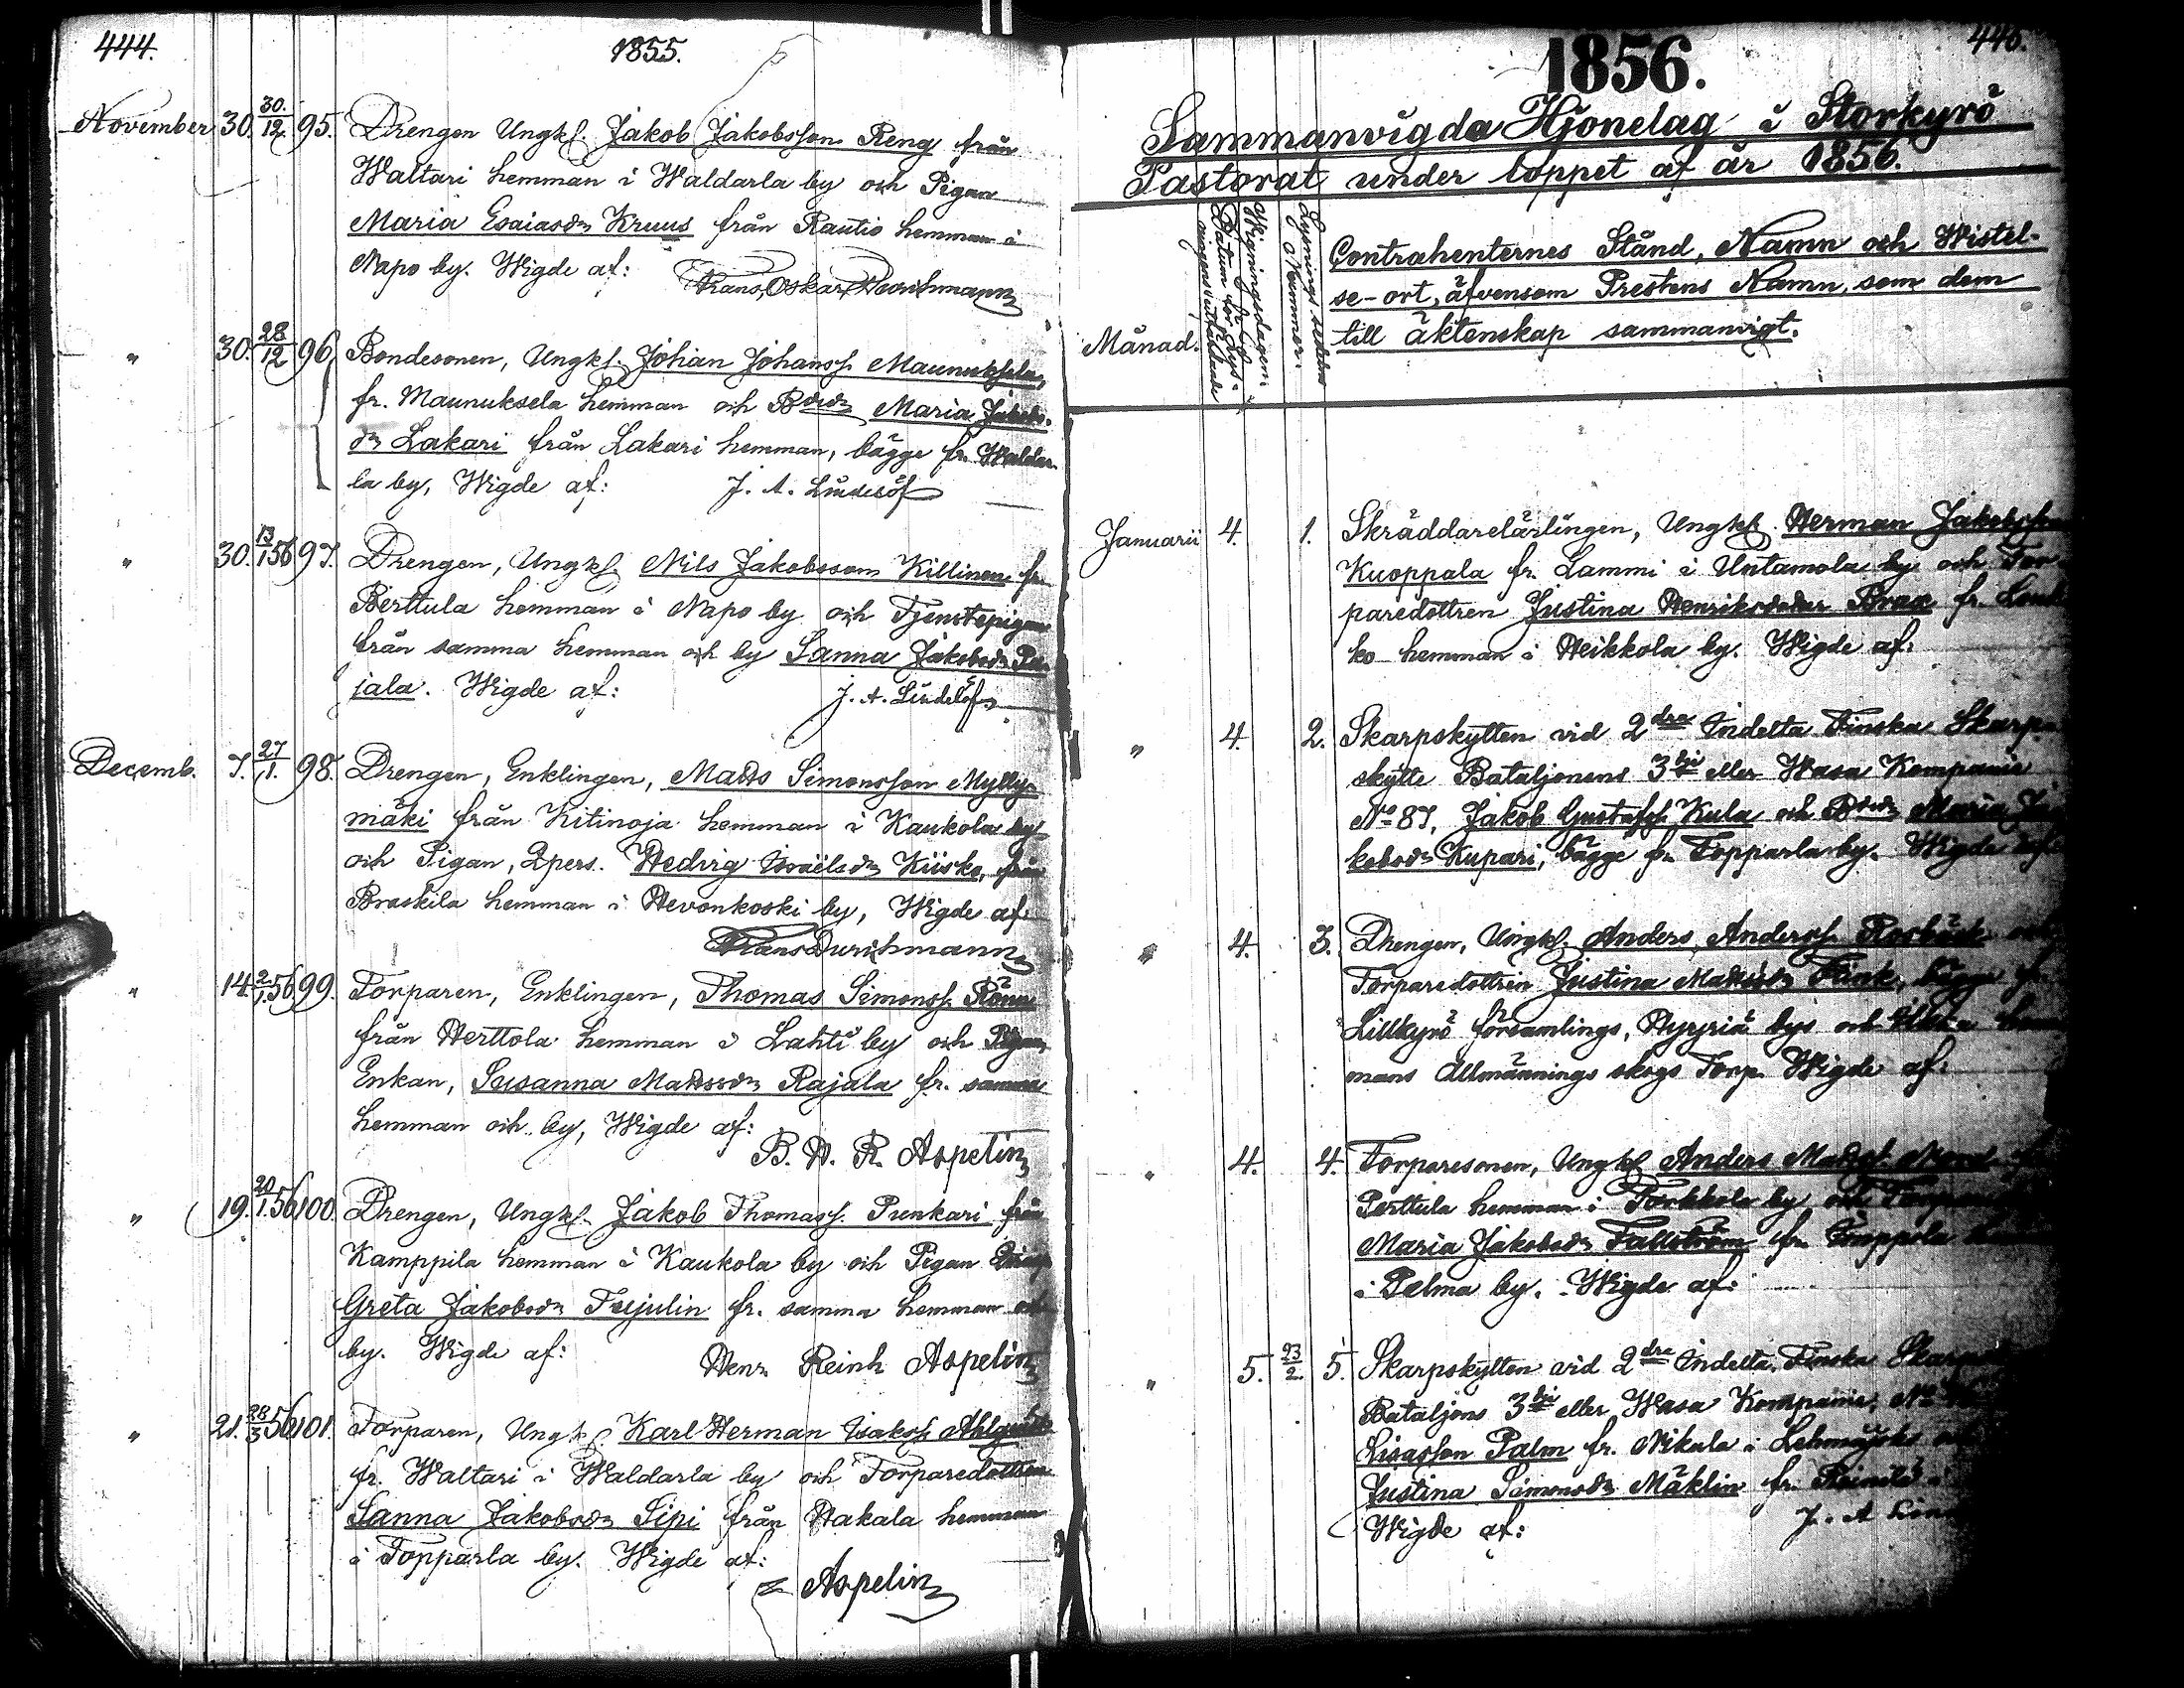 444.
1855.
November 30. 30./12. 95. Drengen Ungkl. Jakob Jakobsson Reng från
Waltari hemman i Waldarla by och Pigan
Maria Esaiasdr Kruus från Rautio hemman i
Napo by. Wigde af: Frans Oskar Durchmann
" 30. 28/12 96. Bondesonen, Ungkl. Johan Johanss. Maunuksela,
fr. Maunuksela hemman och Bdodr Maria Jakobs-
dr Lakari från Lakari hemman, bägge fr. Waldar-
la by, Wigde af: J. A. Lindelöf
" 30. 13/1 56 97. Drengen, Ungkl. Nils Jakobsson Killinen fr.
Berttula hemman i Napo by och Tjenstepigan
från samma hemman och by Sanna Jakobsdr Pa-
jala. Wigde af: J. A. Lindelöf
Decemb. 7. 27/1. 98. Drengen, Enklingen, Matts Simonsson Mylly-
mäki från Kitinoja hemman i Kaukola by
och Pigan, Qpers. Hedvig Israëlsdr Kiisko, från
Braskila hemman i Hevonkoski by, Wigde af:
Frans Durchmann
" 14. 2/1. 56 99. Torparen, Enklingen, Thomas Simonss. Rönn
från Herttola hemman i Lahti by och Pigan
Enkan, Susanna Mattsdr Rajala fr. samma
hemman och by, Wigde af:
B. H. R. Aspelin
" 19. 20/1. 56 100. Drengen, Ungkl. Jakob Thomass. Punkari från
Kamppila hemman i Kaukola by och Pigan
Greta Jakobsdr Tujulin fr. samma hemman och
by. Wigde af: Henr. Reinh Aspelin
" 21. 28/3 56 101. Torparen, Ungkl. Karl Herman Isakss. Ahlqvist
fr. Waltari i Waldarla by och Torparedottren
Sanna Jakobsdr Sipi från Hakala hemman
i Topparla by. Wigde af:
Aspelin
445.
1856.
Sammanvigda Hjonelag i Storkyrö
Pastorat under loppet af år 1856.
Månad.
Datum för Lys-
ningens utfärdande
Wigningsdagen.
Lysnings sedelns
Nummer.
Contrahenternes Stånd, Namn och Wistel-
se-ort, äfvensom Prestens Namn, som dem
till äktenskap sammanvigt.
Januarii 4. 1. Skräddarelärlingen, Ungkl. Herman Jakobsson
Kuoppala fr. Lammi i Untamala by och Tor-
paredottren Justina Henriksdotter Brax fr.
ko hemman i Heikkola by. Wigde af:
" 4. 2. Skarpskytten vid 2dra Indelta Finska Skarp-
skytte Bataljonens 3dje eller Wasa Kompanie
No 87, Jakob Gustafss. Kula och Bdodr Maria Ja-
kobsdr Kupari, bägge fr. Topparla by. Wigde af:
" 4. 3. Drengen, Ungkl. Anders Anderss. Rosbäck och
Torparedottren Justina Mattsdr Flink, bägge fr.
Lillkyrö församlings, Hyyriä bys och
mans Allmännings skogs Torp. Wigde af:
" 4. 4. Torparesonen, Ungkl. Anders Mattss.
Perttula hemman i Torkkola by och
Maria Jakobsdr Fallström fr.
i Pelma by. Wigde af:
" 5. 23/2. 5. Skarpskytten vid 2dra Indelta Finska
Bataljons 3dje eller Wasa Kompanie, No
Lisasson Palm fr. Nikula i Lehmäjoki
Justina Simonsdr Mäklin fr.
Wigde af: J. A